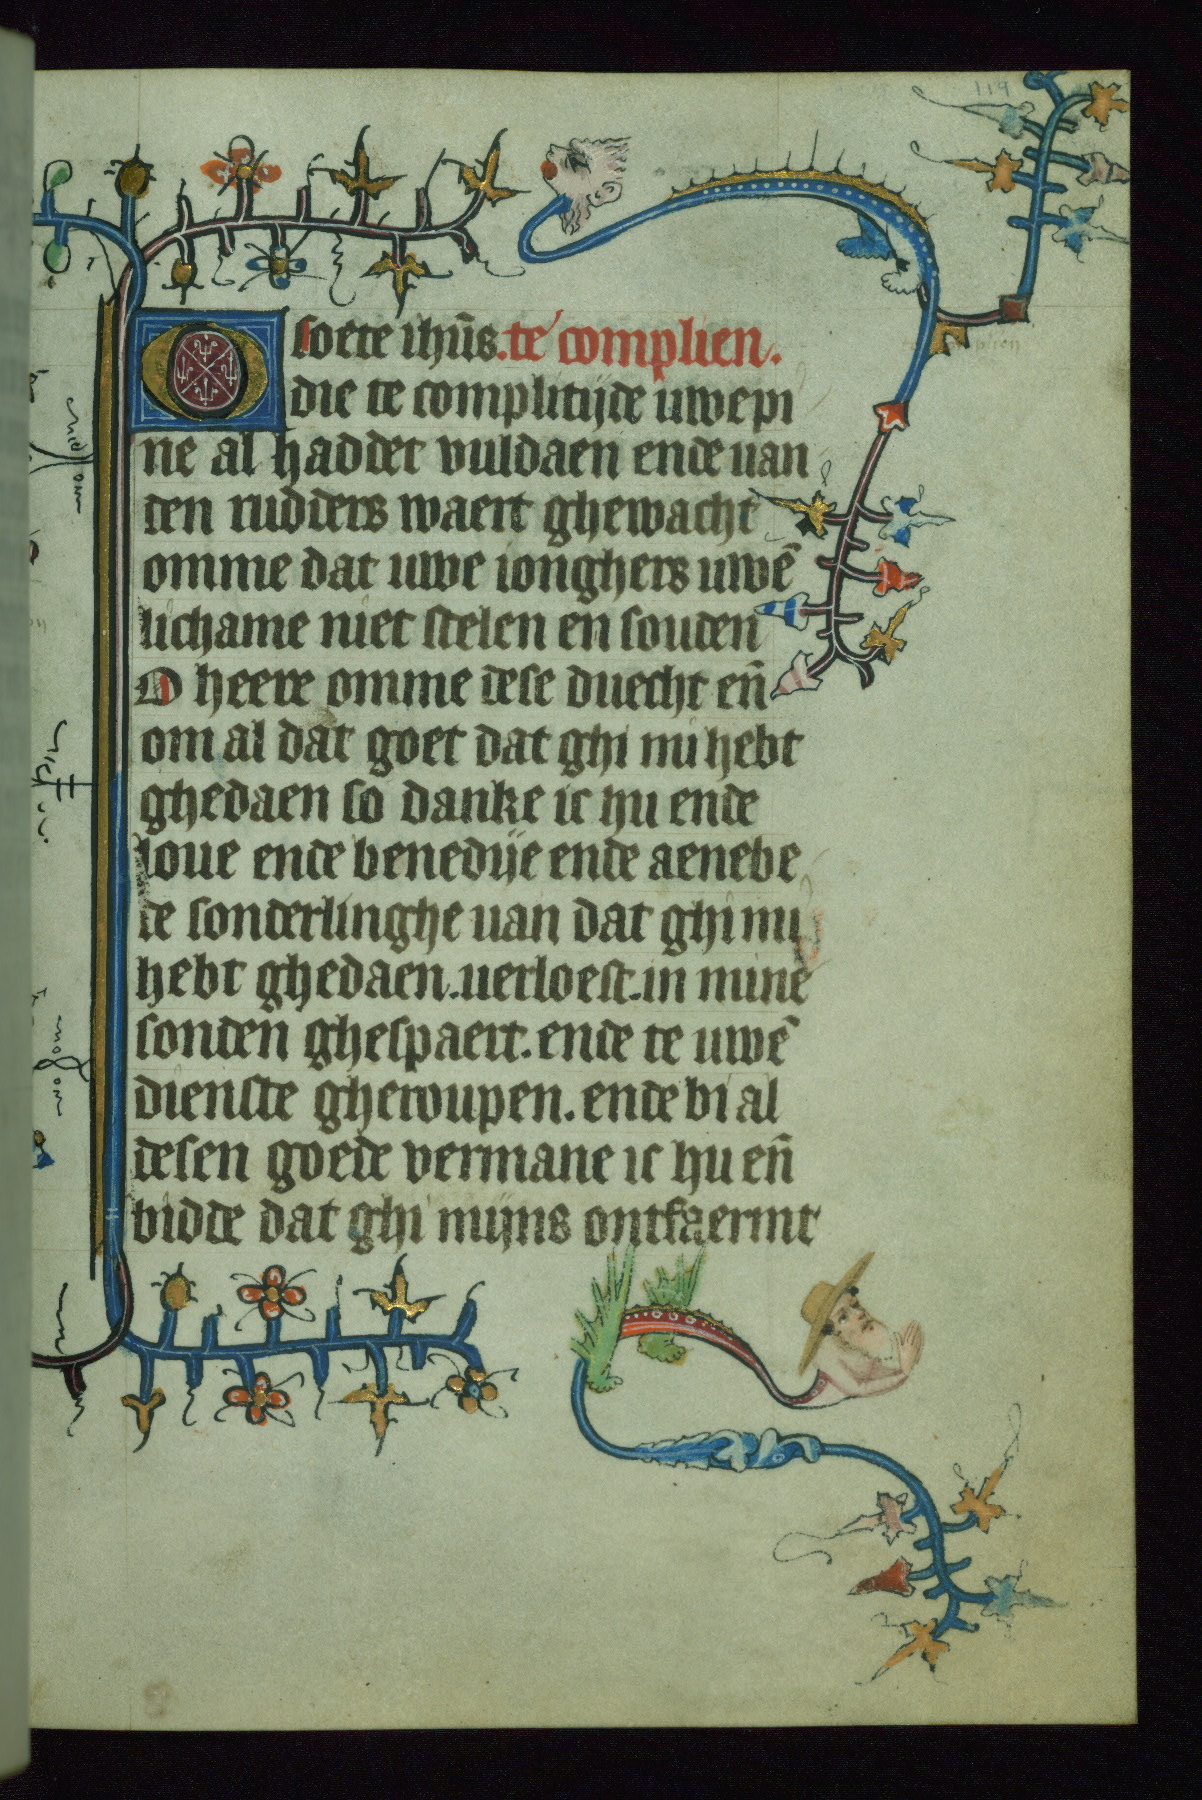 119
O soete ihūs. te complien.
die te complitijde uwe pi
ne al haddet vuldaen ende van
den rudders waert ghewacht
omme dat uwe ionghers uwē
lichame niet stelen en souden
O heere omme dese duecht eñ
om al dat goet dat ghi mi hebt
ghedaen so danke ic hu ende
loue ende benedije ende aenebe
de sonderlinghe uan dat ghi mi
hebt ghedaen. uerloest. in mine
sonden ghespaert. ende te uwē
dienste gheroupen. ende bi al
desen goede vermane ic hu eñ
bidde dat ghi mijns ontfaermt